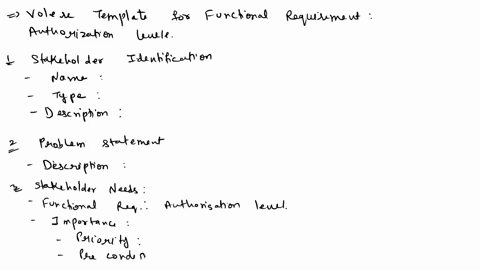 => Volere Template for Functional Requirement :
Authorization levele.
1 Stakeholder Identification
- Name :
- Type :
- Description :
2 Problem Statement
- Description :
3 Stakeholder Needs :
- Functional Req.: Authorisation level.
- Importance :
- Priority :
- Pre conden